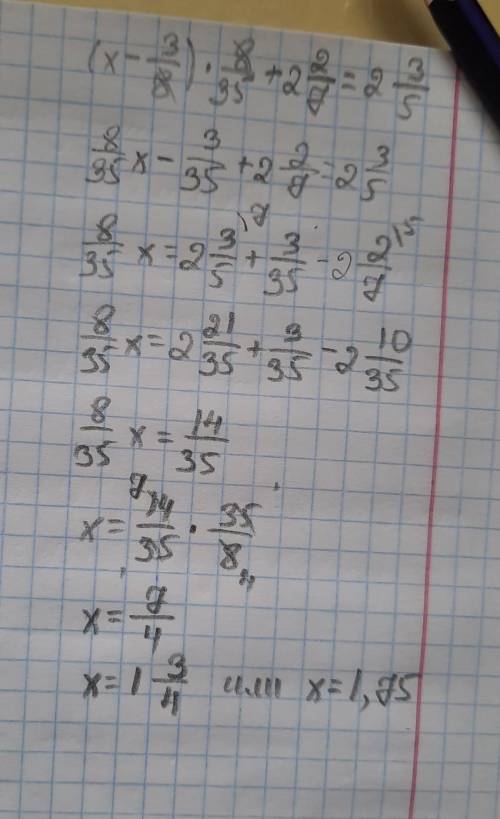 (x - 3/8) · 8/35 + 2 2/7 = 2 3/5
8/35 x - 3/35 + 2 2/7 = 2 3/5
8/35 x = 2 3/5 \7 + 3/35 - 2 2/7 \5
8/35 x = 2 21/35 + 3/35 - 2 10/35
8/35 x = 14/35
x = 7 14/35 · 35/8 4
x = 7/4
x = 1 3/4 или x = 1,75